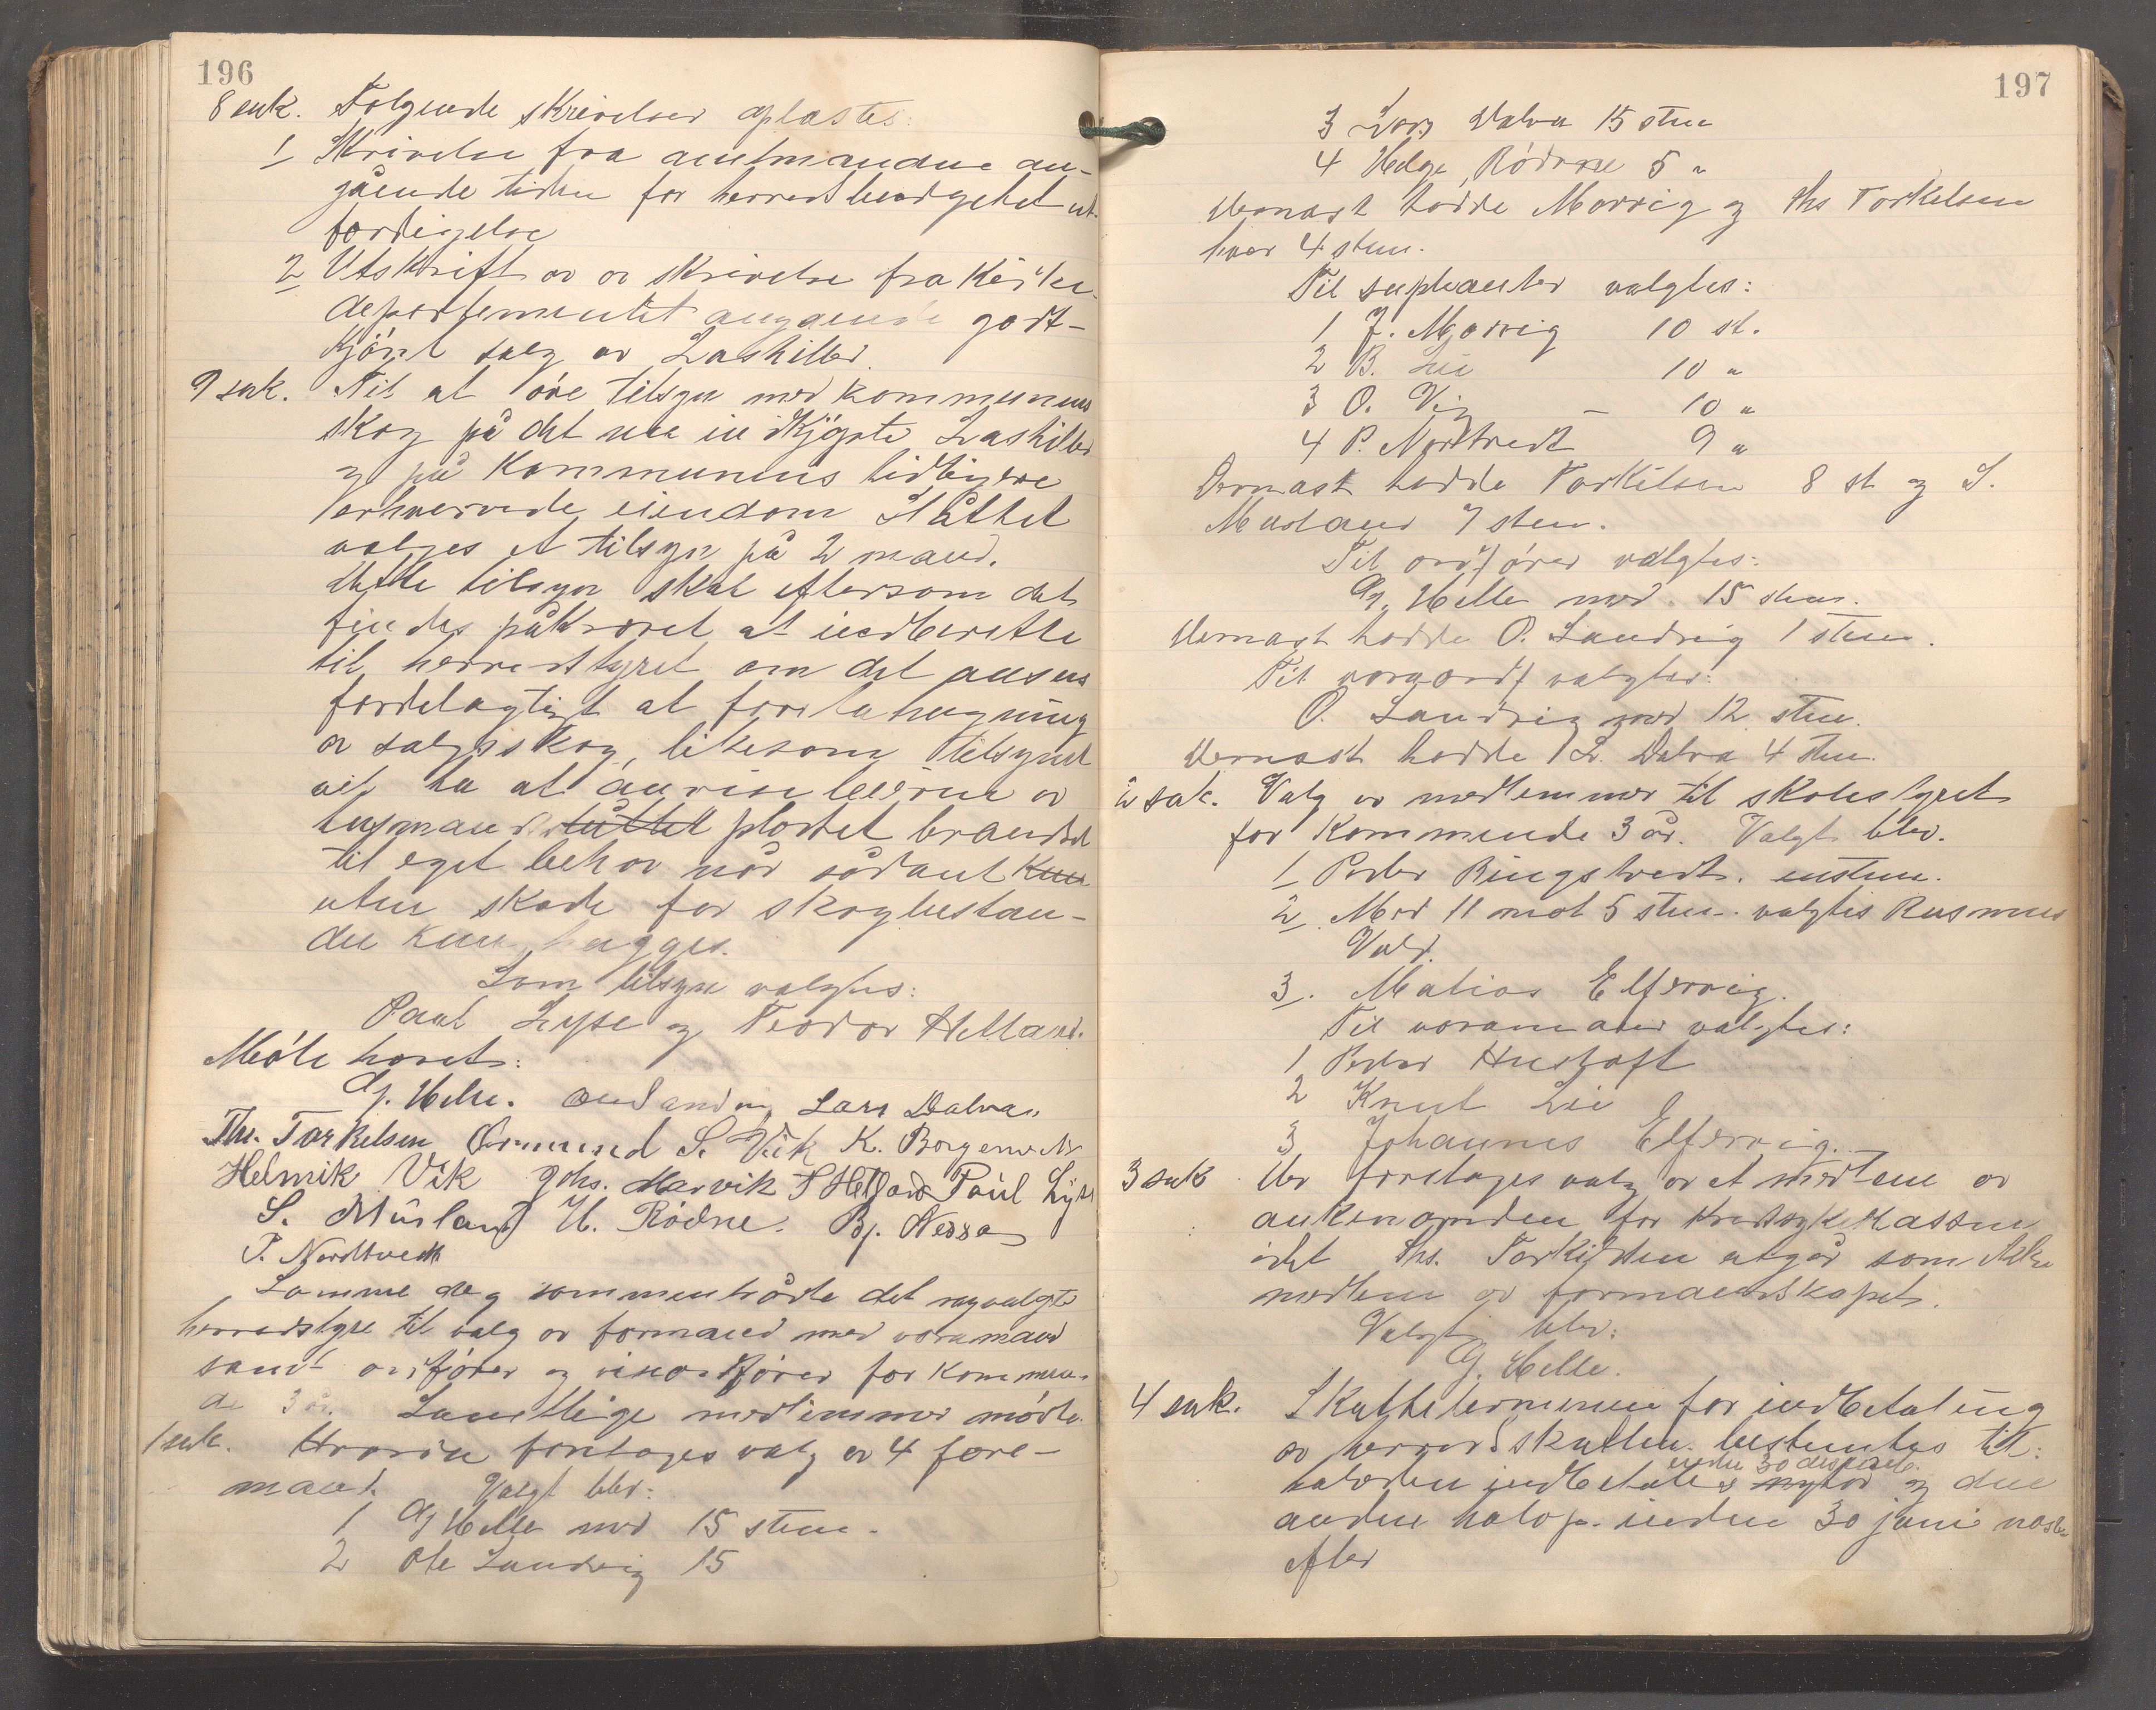 196
8 sak. Følgende skrivelser oplæstes:
1 Skrivelse fra amtmanden an-
gående tiden for herredsbudgetet ut-
færdigelse
2 Utskrift av skrivelse fra Kirke-
departementet angaende godt-
kjönt salg av Lashiller.
9 sak. Til at øve tilsyn med kommunens
skog på det nu indkjøpte Lashiller
og på kommunens tidligere
erhvervede eiendom Slåttet
valges et tilsyn på 2 mand.
Dette tilsyn skal eftersom det
findes påkrævet at indberette
til herredstyret om det anses
fordelagtigt at foreta hugning
av salgsskog, likesom tilsynet
vil ha at anvise leierne av
husmands slåttet pladset brændsel
til eget behov når sådant kun
uten skade for skogbestan-
den kun hugges.
Som tilsyn valgtes:
Paul Lyse og Teodor Helland.
Møte hævet:
Gj. Helle. Ole Landvig Lars Dalva
Ths. Torkelsen Osmund S. Vik K. Borgen
Helmik Vik Johs. Marvik T Helland Paul Lyse
S. Musland H. Rødne. Bj. Nessa
P. Nordtvedt
Samme dag sammentrådte det nyvalgte
herredstyre til valg av formænd med varamænd
samt ordfører og viseordfører for kommen-
de 3 år. Samtlige medlemmer mødte.
1 sak. Hvorav foretages valg av 4 fore-
mænd. Valgt blev:
1 Gj Helle med 15 stem.
2 Ole Landvig 15
197
3 Lars Dalva 15 stem
4 Helge Rødne 5 "
Dernæst hadde Marvig og Ths Torkelsen
hver 4 stem.
Til suplianter valgtes:
1 J. Marvig 10 st.
2 B. Lie 10 "
3 O. Vig - 10 "
4 P. Nortvedt 9 "
Dernæst hadde Torkelsen 8 st og S.
Musland 7 stem.
Til ordfører valgtes:
Gj. Helle med 15 stem.
Dernæst hadde O. Landvig 1 stem.
Til varaordf valgtes:
O. Landvig med 12 stem.
Dernæst hadde L. Dalva 4 stem.
2 sak. Valg av medlemmer til skolestyret
for kommende 3 år. Valgt blev.
1 Peder Ringstveit. enstem.
2 Med 11 mot 5 stem. valgtes Rasmus
Vald.
3. Matias Elfervig.
Til varamænd valgtes:
1 Peder Hustoft
2 Knut Lie
3 Johannes Elfervig.
3 sak Der foretages valg av et medlem av
ankenævnden for kredssykekassen
idet Ths. Torkildsen utgår som ikke
medlem av formandskapet.
Valgt blev:
Gj. Helle.
4 sak. Skatteterminen for indbetaling
av herredsskatten bestemtes til:
inden 30 desember
halvdelen indbetales nytår og den
anden halvp. inden 30 juni næst-
efter